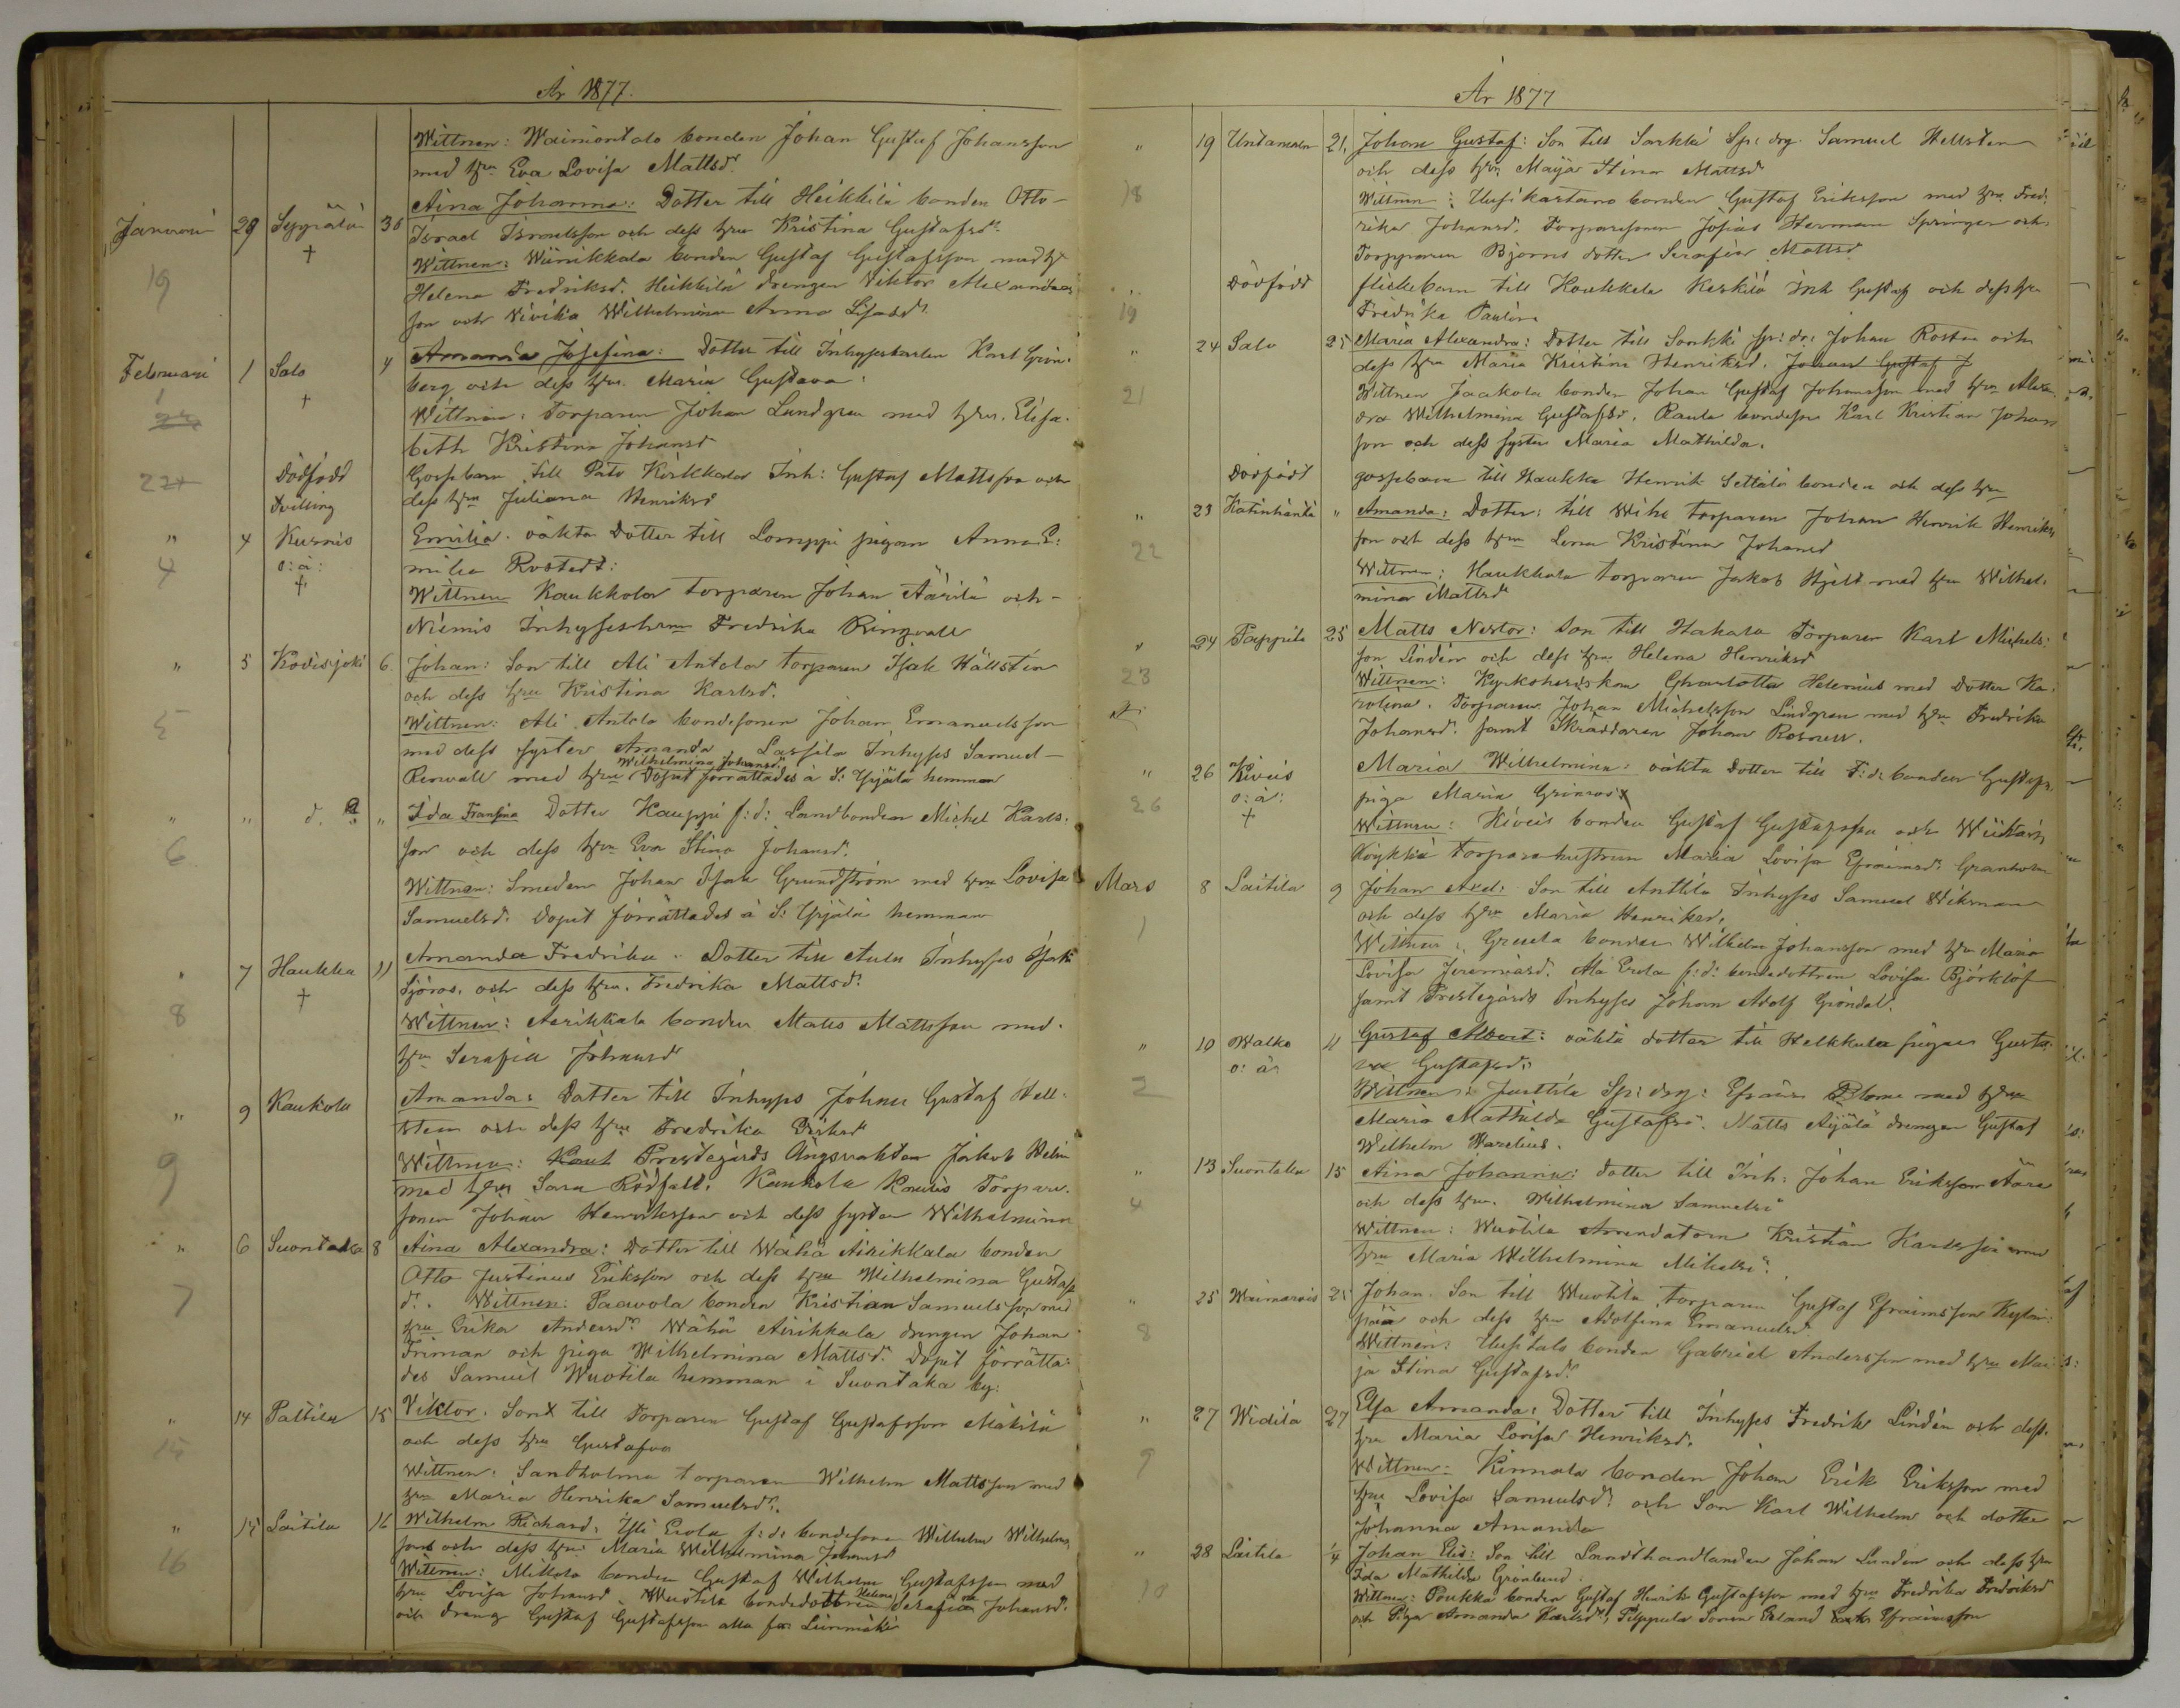 År 1877.
Wittnen: Waimontalo bonden Johan Gustaf Johansson
med hru Eva Lovisa Mattsd.
Januari 29 Seppälä 30 Aina Johanna: Dotter till Heikkilä bonden Otto
† Israel Israelsson och dess hru Kristina Gustafsd.
Wittnen: Wiinikkala bonden Gustaf Gustafsson med h
19 Helena Fredriksd. Heikkilä drengen Viktor Alexanders
son och Vivika Wilhelmina Anna
Februari 1 Salo 4 Amanda Josefina: Dotter till Inhyseskarlen Karl Grön-
1 † berg och dess hru. Maria Gustava:
Wittnen: Torparen Johan Lundgren med hru. Elisa-
beth Kristina Johansd
22 Dödfödd Gossebarn till Pato Kirkkala Inh: Gustaf Mattsson och
Tvilling dess hru Juliana Henriksd
" 4 Kurnis Emilia. oäkta Dotter till Lamppi pigan Anna E:
4 o: ä: milia Rostedt:
† Wittnen Kaukkola torparen Johan Äärilä och
Niemis Inhyseshru Fredrika Ringvall
" 5 Kodisjoki 6 Johan: Son till Ali Antola torparen Isak Hällstén
och dess hru Kristina Karlsd.
5 Wittnen: Ali Antola bondesonen Johan Emanuelsson
med dess syster Amanda, Lassila Inhyses Samuel
Wilhelmina Johansd.
Renvall med hru Dopet förrättades å S: Yrjälä hemman
" " d. " Ida Fransina Dotter Kauppi f: d: Landbonden Michel Karls-
6 son och dess hru Eva Stina Johansd.
Wittnen: Smeden Johan Isak Grundström med hru Lovisa
Samuelsd. Dopet förrättades å S: Yrjälä hemman
" 7 Haukka 11 Amanda Fredrika. Dotter till Inhyses Isak
† Sjöros. och dess hru. Fredrika Mattsd.
8 Wittnen: Aerikkala bonden Matts Mattsson med
hru Serafia Johansd
" 9 Kaukola Amanda: Dotter till Inhyses Johan Gustaf Hell-
sten och dess hru Fredrika
9 Wittnen: Prestegårds Ängsvakten Jakob Helin
med hru Sara Rödfalt. Kaukola Torpare-
sonen Johan Henriksson och dess syster Wilhelmina
" 6 Suontaka 8 Aina Alexandra: Dotter till Wähä Airikkala bonden
Otto Justinus Eriksson och dess hru Wilhelmina Gustafs
7 d. Wittnen: Paavola bonden Kristian Samuelsson med
hru Erika Andersd. Wähä Airikkala drengen Johan
Friman och piga Wilhelmina Mattsd. Dopet förrätta-
des Samuel Wuotila hemman i Suontaka by.
" 14 Palttila 15 Viktor. Son till Torparen Gustaf Gustafsson Mäkilä
15 och dess hru Gustafva
Wittnen: Santholma torparen Wilhelm Mattsson med
hru Maria Henrika Samuelsd.
" 15 Laitila 16 Wilhelm Richard: Yli Erola f: d: bondesonen Wilhelm Wilhelms
16 son och dess hru Maria Wilhelmina Johansd
Wittnen: Mikola bonden Gustaf Wilhelm Gustafsson med
Helena
hru Lovisa Johansd. Wuotila bondedottren Serafia Johansd.
och dreng Gustaf Gustafsson Liinmäki
År 1877
" 19 Untamala 21. Johan Gustaf: Son till Sarkki Sp: drg. Samuel Hellsten
och dess hru Maija Stina Mattsd
18 Wittnen: Uusikartano bonden Gustaf Eriksson med hru Fred-
rika Johansd. Torparesonen Josias Herman Springer och
Torparen Björns dotter Serafia Mattsd
" Dödfödd flickebarn till Haukkala Keskilä Inh Gustaf och dess hru
19 Fredrika Paulina
" 24 Salo 25 Maria Alexandra: Dotter till Sarkki sp: dr: Johan Rostén och
dess hru Maria Kristina Henriksd. Johan Gustaf J
21 Wittnen Jaakola bonden Johan Gustaf Johansson med hru Alexan
dra Wilhelmina Gustafsd. Paula bondeson Karl Kristian Johans
son och dess syster Maria Mathilda.
Dödfödt gossebarn till Haukka Henrik Settälä bonden och dess hru
" 23 Katinhäntä " Amanda: Dotter: till Wihi torparen Johan Henrik Henriks
22 son och dess hru Lena Kristina Johansd
Wittnen: Haukkala torparen Jakob Hjelt med hru Wilhel-
mina Mattsd
" 24 Pappila 25 Matts Nestor: Son till Hakala Torparen Karl Michels-
son Lindén och dess hru Helena Henriksd
23 Wittnen: Kyrkoherdskan Charlotta Helenius med Dotter Ka-
rolina. Torparen Johan Michelsson Lindgren med hru Fredrika
Johansd. samt Skräddaren Johan Rosnell.
" 26 Kivis Maria Wilhelmina: oäkta Dotter till F: d: bonden Gustafs.
26 o: ä: piga Maria Grönros
† Wittnen: Kiveis bonden Gustaf Gustafsson och
torparehustrun Maria Lovisa Efraimsd. Granholm
Mars 8 Laitila 9 Johan Axel: Son till Anttila Inhyses Samuel Wikman
1 och dess hru Maria Henriksd.
Wittnen: Greula bonden Wilhelm Johansson med hru Maria
Lovisa Jeremiasd. Ala Erola f: d: bondedottren Lovisa Björklöf
samt Prestegårds Inhyses Johan Adolf Gröndal.
" 10 Walko 11 Gustaf Albert: oäkta dotter till Helkkula pigan Gusta
2 o: ä: va Gustafsd.
Wittnen: Junttila Sp: drg: Efraim Blome med hru
Maria Mathilda Gustafsd. Matts Äijälä drengen Gustaf
Wilhelm Warelius.
" 13 Suontaka 15 Aina Johanna: dotter till Inh: Johan Eriksson Aära
4 och dess hru. Wilhelmina Samuelsd
Wittnen: Wuotila Arrendatorn Kristian Karlsson med
hru Maria Wilhelmina Mikelsd.
" 25 Waimaro 25 Johan. Son till Wuotila torparen Gustaf Efraimsson Kylän-
8 pää och dess hru Adolfina Emanuelsd.
Wittnen: Uusitalo bonden Gabriel Andersson med hru Mai
ja Stina Gustafsd.
" 27 Widilä 27 Elsa Amanda: Dotter till Inhyses Fredrik Lindén och dess.
hru Maria Lovisa Henriksd.
9 Wittnen: Kinnala bonden Johan Erik Eriksson med
hru Lovisa Samuelsd. och Son Karl Wilhelm och dotter
Johanna Amanda
" 28 Laitila 1/4 Johan Elis: Son till Landthandlanden Johan Lunden och dess hru
10 Ida Mathilda Grönlund.
Wittnen: Poukka bonden Gustaf Henrik Gustafsson med hru Fredrika Fredriksd
och Piga Amanda Karlsd, Pilppula Sonen Erland Efraimsson